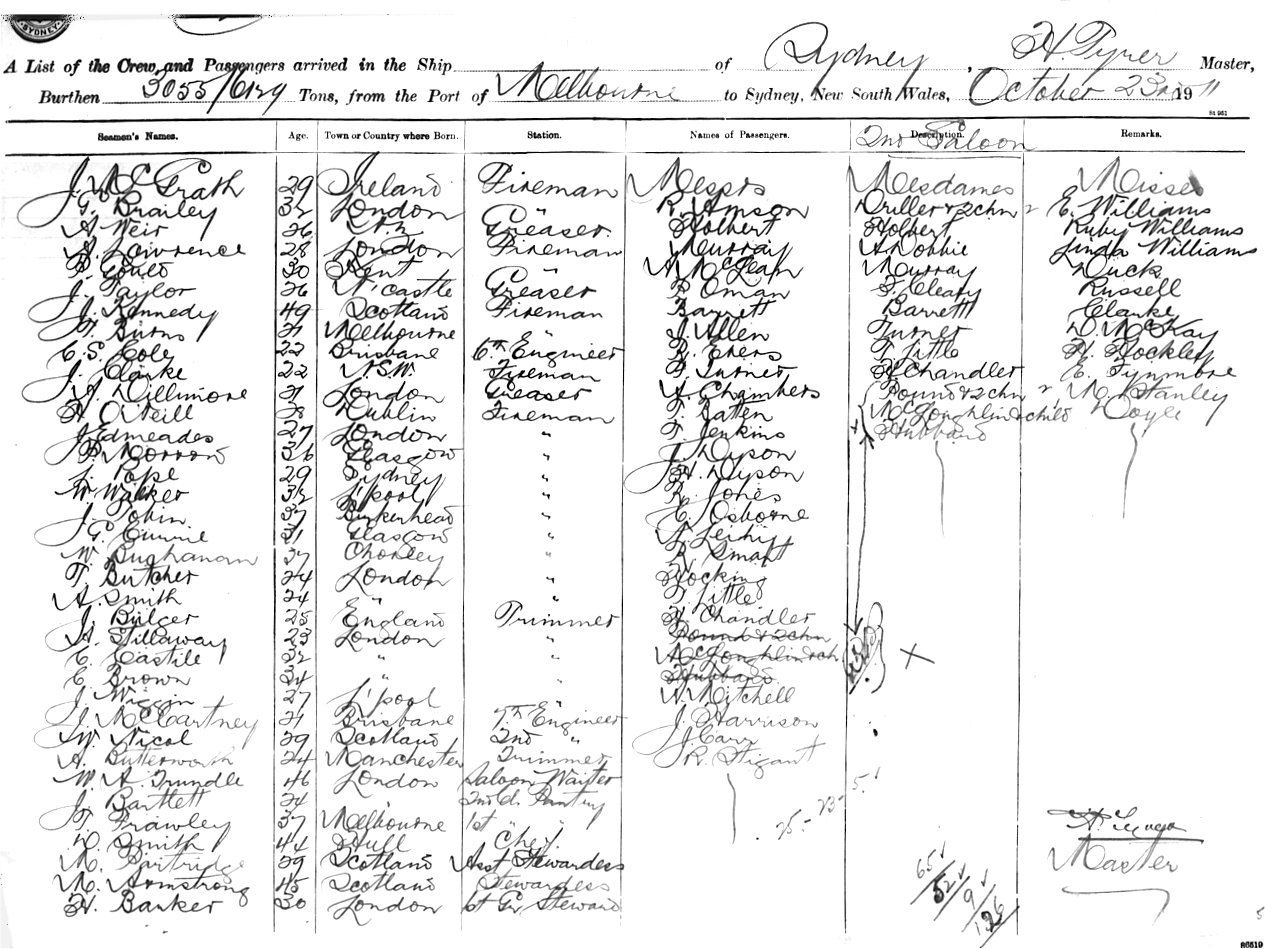 SYDNEY
A List of the Crew and Passengers arrived in the Ship of Sydney, H. Tyrer Master,
Burthen 3055/6129 Tons, from the Port of Melbourne to Sydney, New South Wales, October 23rd 1911
St 961
Seamen's Names. Age. Town or Country where Born. Station. Names of Passengers. Description. Remarks.
2nd Saloon
J. McGrath 29 Ireland Fireman Messrs Mesdames Misses
G. Brailey 32 London " R. Amson Driller & 2 chn 2 E. Williams
A. Weir 26 Greaser Holbert Holbert Ruby Williams
A. Lawrence 28 London Fireman Murray A. Dobbie Linda Williams
B. Gould 30 Kent " A. McLean Murray Duck
J. Taylor 26 N'castle Greaser P. Oman F. Cleary Russell
J. Kennedy 49 Scotland Fireman Barrett Barrett Clarke
F. Burns 21 Melbourne " J. Allen Turner D. McKay
C. S. Cole 22 Brisbane 6th Engineer R. Evers T. Little H. Hockley
J. Clarke 22 N.S.W. Fireman F. Turner H. Chandler E. Tynmore
A. Willimore 21 London Greaser A. Chambers Pound & 2 chn 2 M. Stanley
H. O'Neill 28 Dublin Fireman F. Batten McLoughlin & child Doyle
J. Edmeades 27 London " F. Jenkins Hubband
P. Morrow 36 Glasgow " J. Dyson
L. Pope 29 Sydney " H. Dyson
W. Walker 32 L'pool " R. Jones
J. Tobin 37 Birkenhead " C. Osborne
G. Currie 31 Glasgow "
W. Buchanan 37 Chorley " R. Smart
T. Butcher 24 London " Hocking
A. Smith 24 " " T. Little
J. Bulger 25 England Trimmer H. Chandler
A. Tillaway 23 London " Pound & 2 chn
C. Castile 32 " " McLoughlin & ch
C. Brown 24 " " Hubband
J. Wiggin 27 L'pool " W. Mitchell
J. McCartney 21 Brisbane 7th Engineer J. Harrison
W. Nicol 29 Scotland 2nd " J. Carr
A. Butterworth 24 Manchester Trimmer R. Stigant
W. A. Trundle 46 London Saloon Waiter
J. Bartlett 24 " 2nd Cl. Pantry
F. Frawley 37 Melbourne 1st " "
D. Smith 44 Hull Chef
M. Partridge 29 Scotland Asst Stewardess
M. Armstrong 45 Scotland Stewardess
H. Banker 30 London 1st Gr Steward
Master
65
52/9/126
86519